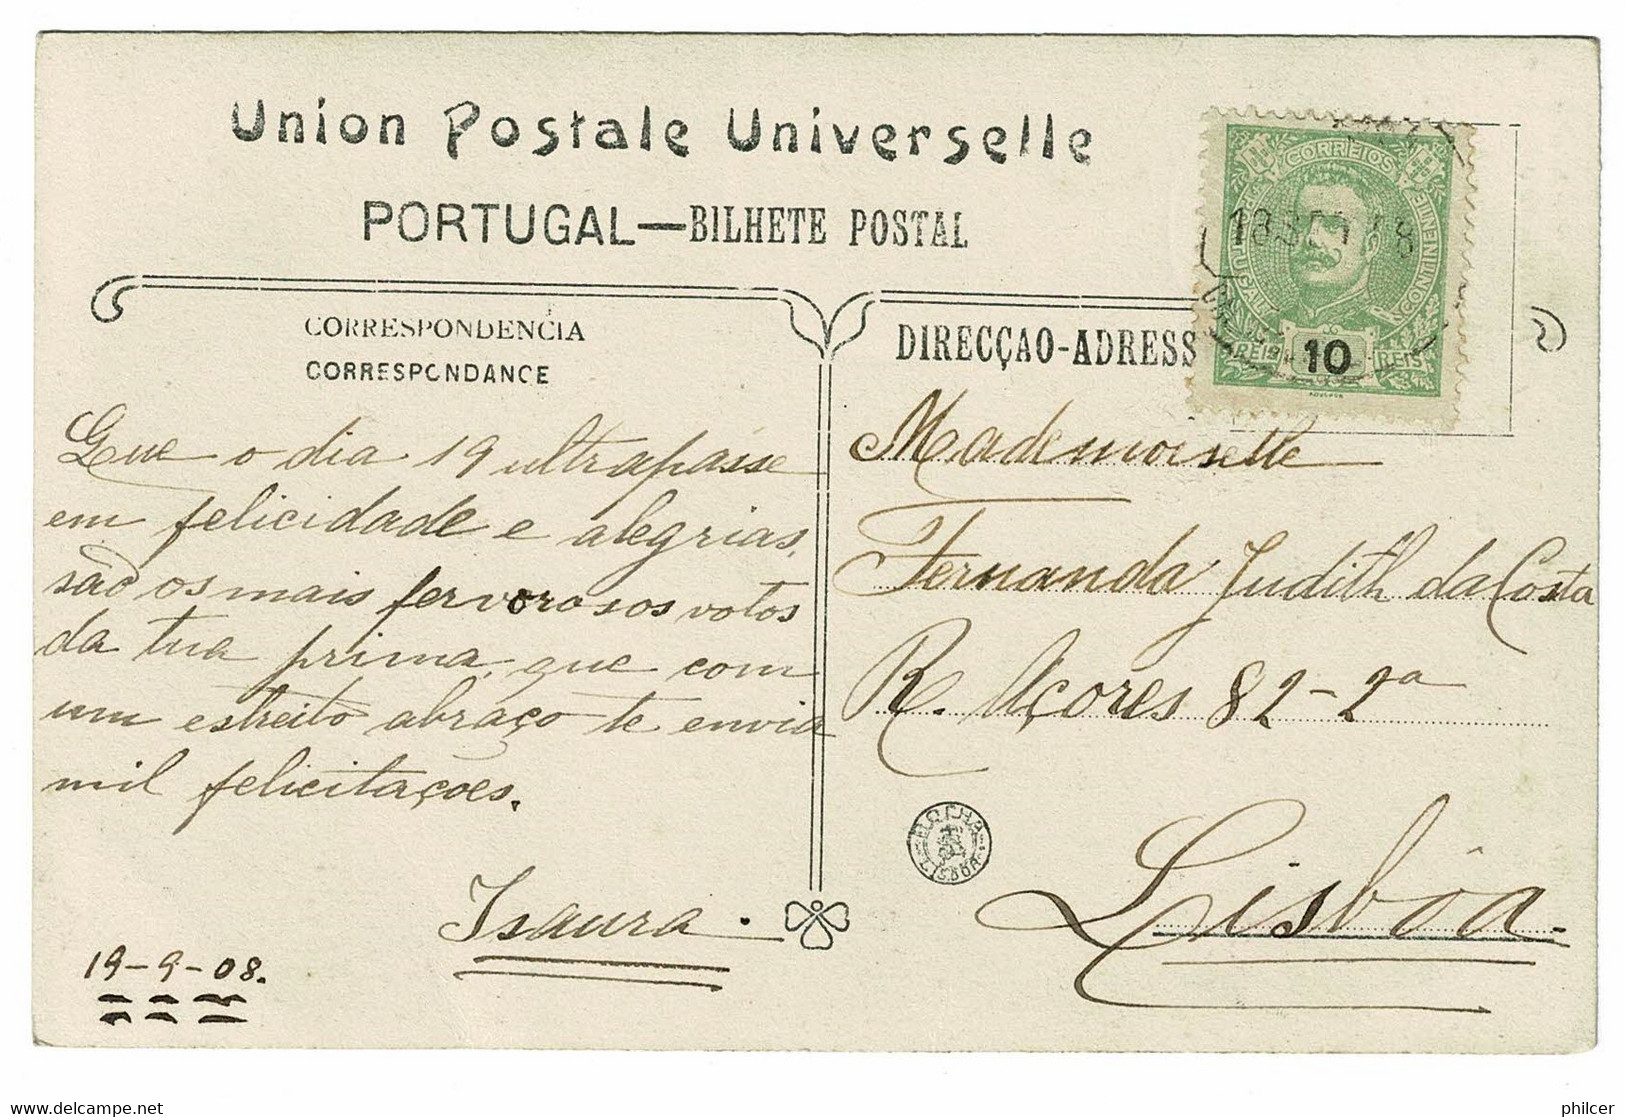 Union Postale Universelle
PORTUGAL—BILHETE POSTAL
CORRESPONDENCIA
CORRESPONDANCE
DIRECÇAO-ADRESS
CORREIOS
CONTINENTE
REIS 10 REIS
Que o dia 19 ultrapasse
em felicidade e alegrias,
são os mais fervorosos votos
da tua prima, que com
um estreito abraço te envia
mil felicitações.
Isaura.
19-9-08.
Mademoiselle
Fernanda Judith da Costa
R. Açores 82-2ª
Lisbôa.
ROCHA
LISBOA
philcer